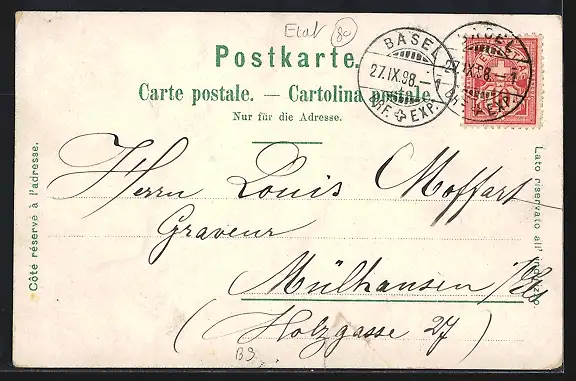 Etat 80
Postkarte.
Carte postale. — Cartolina postale.
Nur für die Adresse.
BASEL
27.IX.98.–1
BRF. EXP.
BASEL
27.IX.98.–1
EXP.
Côté réservé à l'adresse.
Lato riservato all' indirizzo.
Herrn Louis Moffart
Graveur
Mülhausen /Els
(Holzgasse 27)
B9